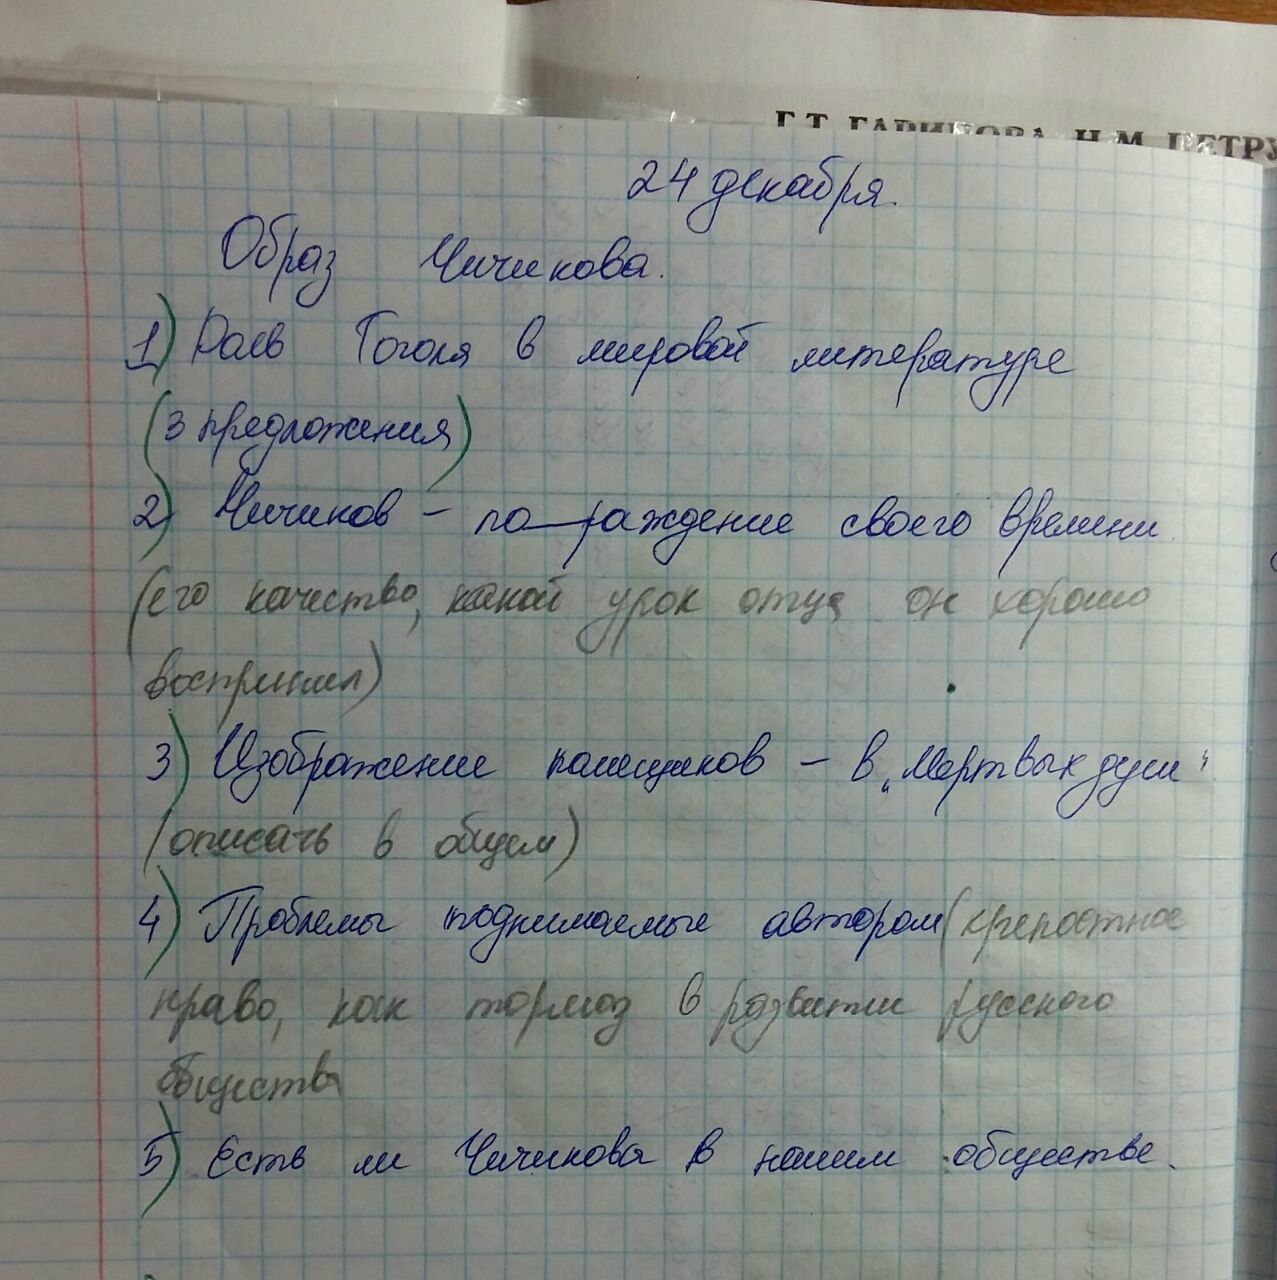 Г.Т. ГАРИПОВА, Н.М. ПЕТРУ
24 декабря.
Образ Чичикова.
1) Роль Гоголя в мировой литературе
(3 предложения)
2) Чичиков – по_раждение своего времени.
(его качество, какой урок отца он хорошо
воспринял)
3) Изображение помещиков – в „Мертвых душ"
(описать в общем)
4) Проблемы поднимаемые автором (крепостное
право, как тормоз в развитии русского
общества
5) Есть ли Чичикова в нашим обществе.